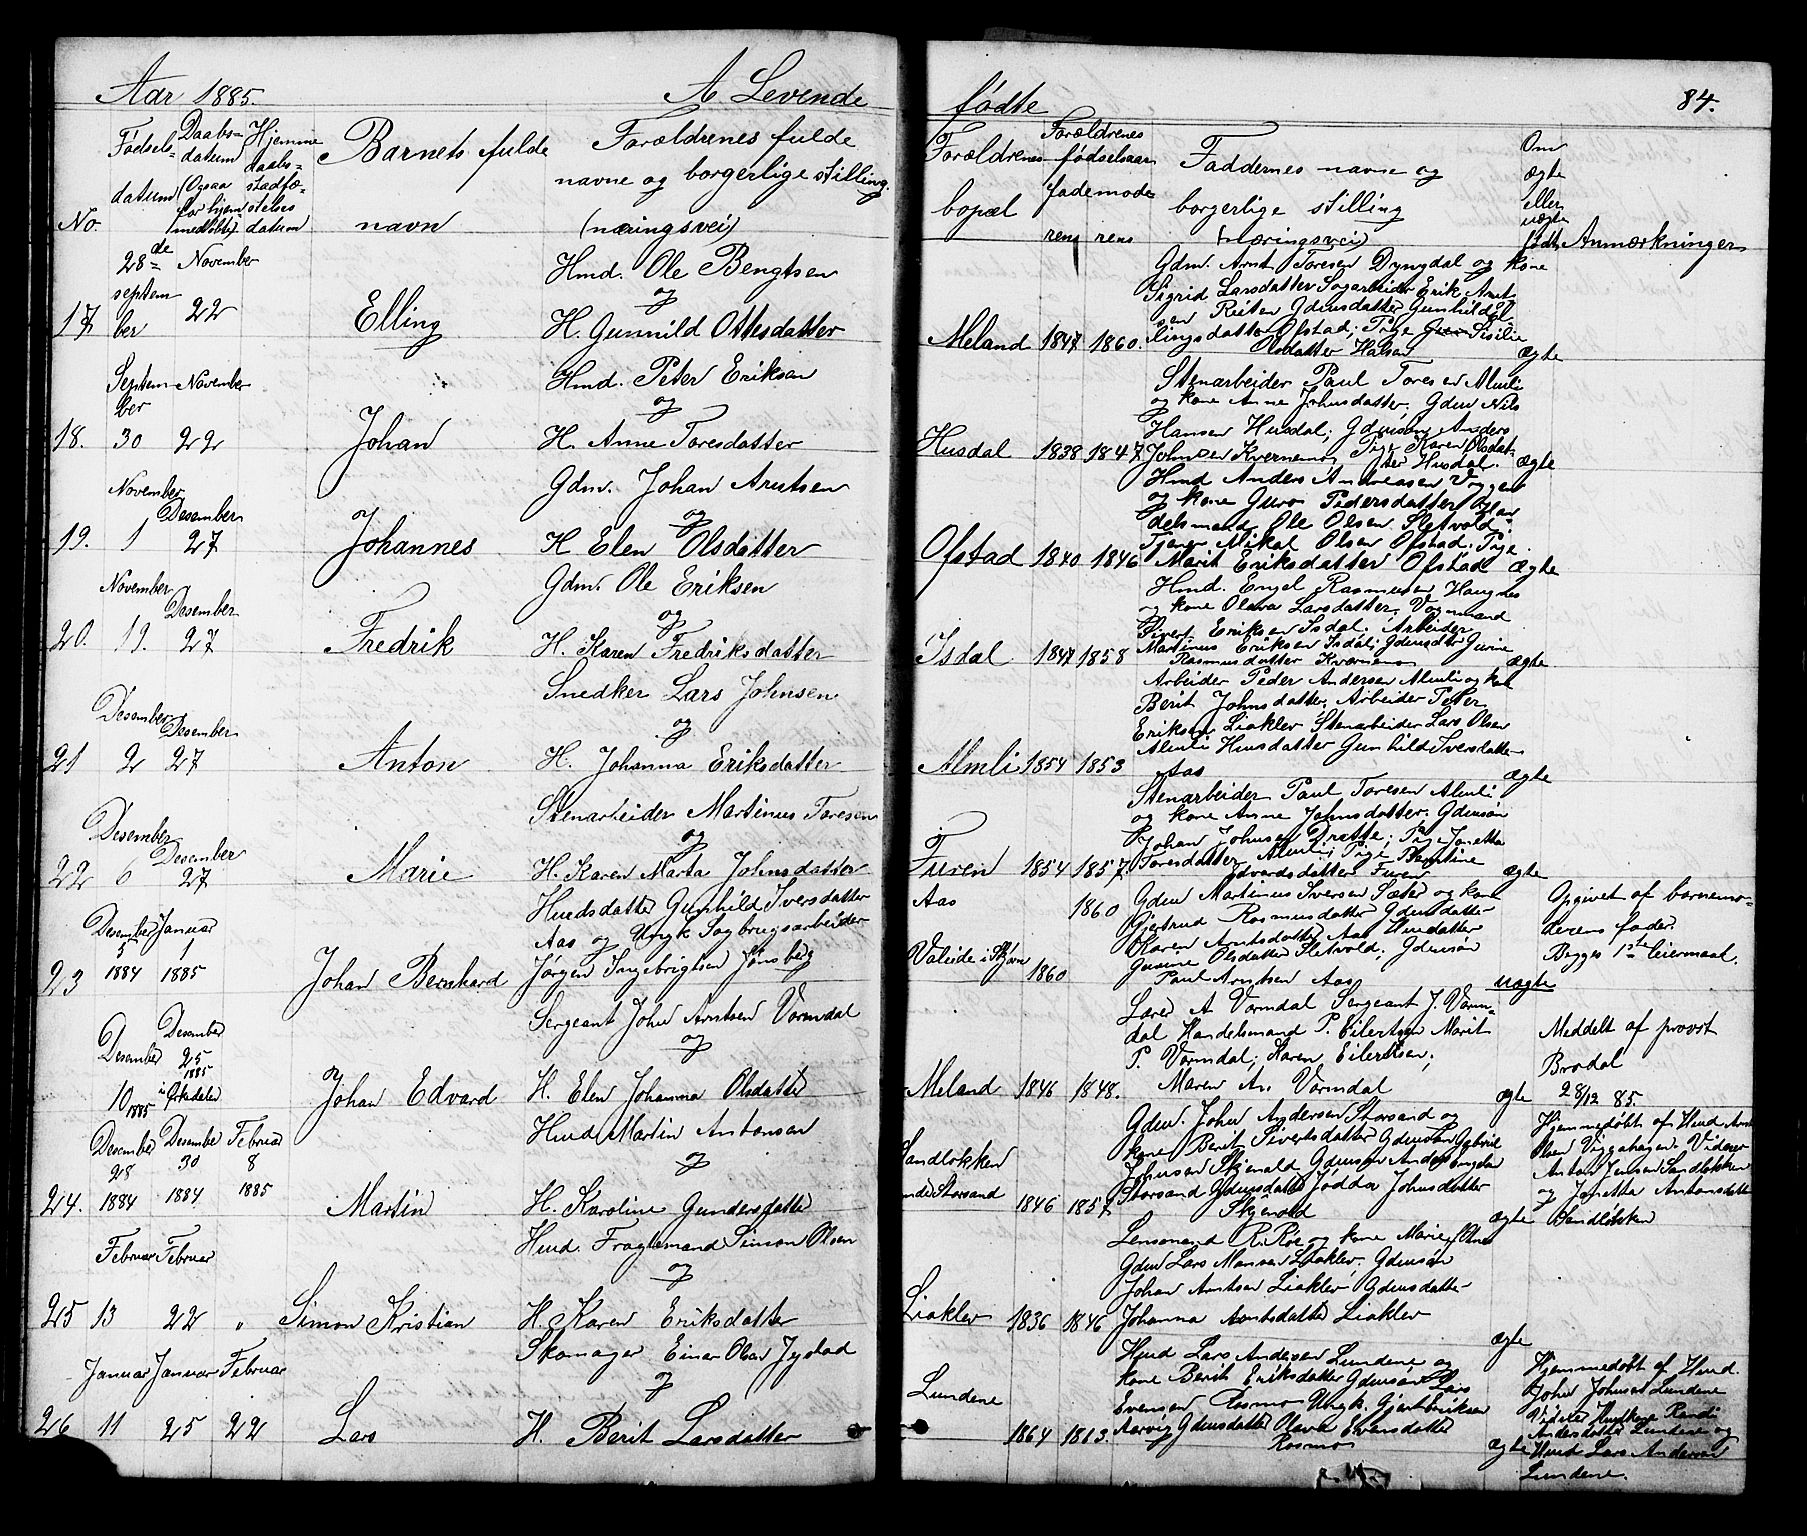 Aar 1885. A. Levende
Fødsels-datum Daabs-datum (Ogsaa for hjem medøbte) Hjemme daabs-stadfæ-stelses datum Barnets fulde navn Forældrenes fulde navne og borgerlige stilling. (næringsvei)
No.
28de september 22 November
17 Elling Hmd. Ole Bengtsen
og
H. Gunnild Ottesdatter
September November
18. 30 22 Johan Hmd. Peter Eriksen
og
H. Anne Toresdatter
November Desember
19. 1 27 Johannes Gdm. Johan Arntsen
og
H Elen Olsdatter
November Desember
20. 19. 27 Fredrik Gdm. Ole Eriksen
og
H. Karen Fredriksdatter
Desember Desember
21 2 27 Anton Snedker Lars Johnsen
og
H. Johanna Eriksdatter
Desember Desember
22 6 27 Marie Stenarbeider Martinus Toresen
og
H. Karen Marta Johnsdatter
Desember Januar
5 1
23 1884 1885 Johan Bernhard Husdsdatter Gunhild Iversdatter
Aas og Ungk Sagbrugsarbeider
Jørgen Ingebrigtsen
Desember Desember 25 1885
10 1885 i Orkedalen Johan Edvard Sergeant John Arntsen Vormdal
og
H. Elen Johanna Olsdatter
Desember Desember Februar
28 30 8
24. 1884 1884 1885 Martin Hmd Martin Antonsen
og
H. Karoline Gundersdatter
Februar Februar
25 13 22 " Simon Kristian Hmd. Simon Olsen
og
H. Karen Eriksdatter
Januar Januar Februar
26 11 25 22 Lars Skomager Einar Olsen
og
H. Berit Larsdatter
fødte 84.
Forældrenes bopæl Forældrenes fødselsaar faderens moderens Faddernes navne og borgerlige stilling (næringsvei) Om ægte eller uægte født Anmærkninger
Gdm. Arnt Toresen Dyngdal og kone
Sigrid Larsdatter Sagarbeider Erik Arnt-
sen Reiten Gdmsdatter Gunhild El
lingsdatter Ofstad; Pige Sisilie
Meland 1847 1860. Olsdatter Halsen ægte
Stenarbeider Paul Toresen Almli
og kone Anne Johnsdatter. Gdm Nils
Hansen Husdal; Gdmsøn Anders
Johnsen Kvernemo Pige Karen Olsdat
Husdal 1838 1847 ter Husdal. ægte
Hmd Anders Andreasen Viggen
og kone Guro Pedersdatter Han
delsmand Ole Olsen Sletvold;
Tjener Mikal Olsen Ofstad; Pige
Ofstad 1840 1846 Marit Eriksdatter Ofstad ægte
Hmd. Engel Rasmusen Haugnes
og kone Olava Larsdatter. Vognmand
Sivert Eriksen Isdal. Arbeider
Martinus Eriksen Isdal; Gdmsdatter Gurine
Isdal 1847 1858 Rasmusdatter Kvernemo ægte
Arbeider Peder Andersen Almli og kone
Berit Johnsdatter; Arbeider Peter
Eriksen Liaklev Stenarbeider Lars Olsen
Almli Husdatter Gunhild Iversdatter
Almli 1854 1853 Aas ægte
Stenarbeider Paul Toresen Almli
og kone Anne Johnsdatter. Gdmsøn
Johan Johnsen; Pige Jonetta
Toresdatter Almli; Pige
Furen 1854 1857. Edvardsdatter Furen ægte
Aas 1860 Gdm Martinus Iversen Sæter og kone Opgivet af barnemo-
Gjertrud Rasmusdatter Gdmsdatter derens fader.
Maren Arntsdatter Aas Husdatter Begges 1ste leiermaal.
Gurine Olsdatter Sletvold; Gdmsøn
1860 Paul Arntsen Aas uægte
Lærer A Vormdal Sergeant J. Vorm-
dal Handelsmand P. Eilertsen Marit Meddelt af provst
P. Vormdal; Karen Eilertsen; Brodal
Meland 1846 1848. Maren An. Vormdal ægte 28/12 85.
Gdm. John Andersen Storsand og Hjemmedøbt af Hmd
kone Berit Sivertsdatter Gdmsøn Gabriel Olsen Viggahagen. Vidner
Sandløkken Johnsen Skjenald Gdmsøn Anders Anton Jensen Sandløkken
under Storsand 1846 1857 Storsand Gdmsdatter Johnsdatter og Jonetta Antonsdatter
Skjenald ægte Sandløkken
Lensmand R. Roe og kone Marie
Gdm Lars Liaklev. Gdmsøn
Johan Arntsen Liaklev Gdmsdatter
Liaklev 1836 1846 Johanna Arntsdatter Liaklev ægte
Hmd Lars Andersen Lundene og Hjemmedøbt af Hmd.
kone Berit Eriksdatter Gdmsøn Lars John Johnsen Lundene
Lundene Evensen Rosmo Ungk. Gjert Eriksen Vidner Husdkone Randi
1864 1863. Aarvig Gdmsdatter Olava Evensdatter Andersdatter Lundene og
Rosmo ægte Hmd Lars Andersen
Lundene.